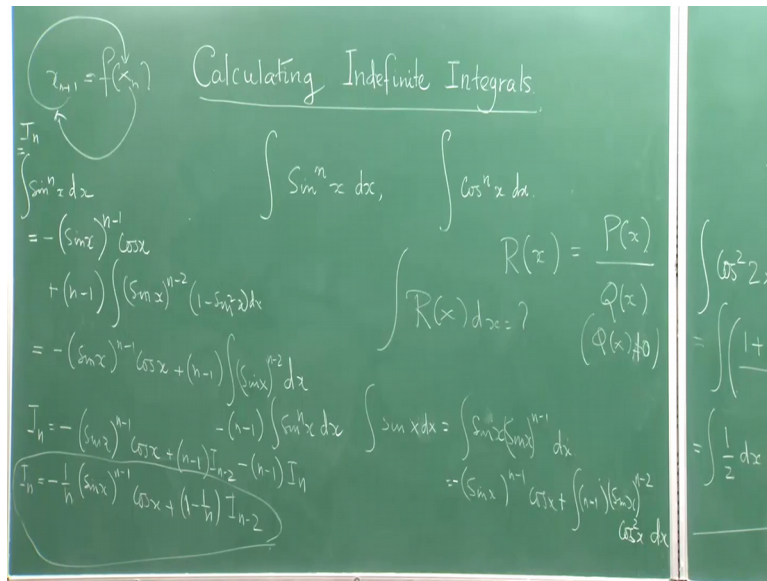 x_{n+1} = f(x_n)
Calculating Indefinite Integrals
I_n
=
∫ sin^n x dx
= -(sin x)^{n-1} cos x
+ (n-1) ∫ (sin x)^{n-2} (1 - sin^2 x) dx
= -(sin x)^{n-1} cos x + (n-1) ∫ (sin x)^{n-2} dx
- (n-1) ∫ sin^n x dx
I_n = -(sin x)^{n-1} cos x + (n-1) I_{n-2} - (n-1) I_n
I_n = -1/n (sin x)^{n-1} cos x + (1 - 1/n) I_{n-2}
∫ Sin^n x dx, ∫ Cos^n x dx.
R(x) = P(x) / Q(x)
(Q(x) ≠ 0)
∫ R(x) dx = ?
∫ sin x dx = ∫ sin x (sin x)^{n-1} dx
= -(sin x)^{n-1} cos x + ∫ (n-1) (sin x)^{n-2}
cos^2 x dx
∫ Cos^2 2x
= ∫ (1 +
= ∫ 1/2 dx